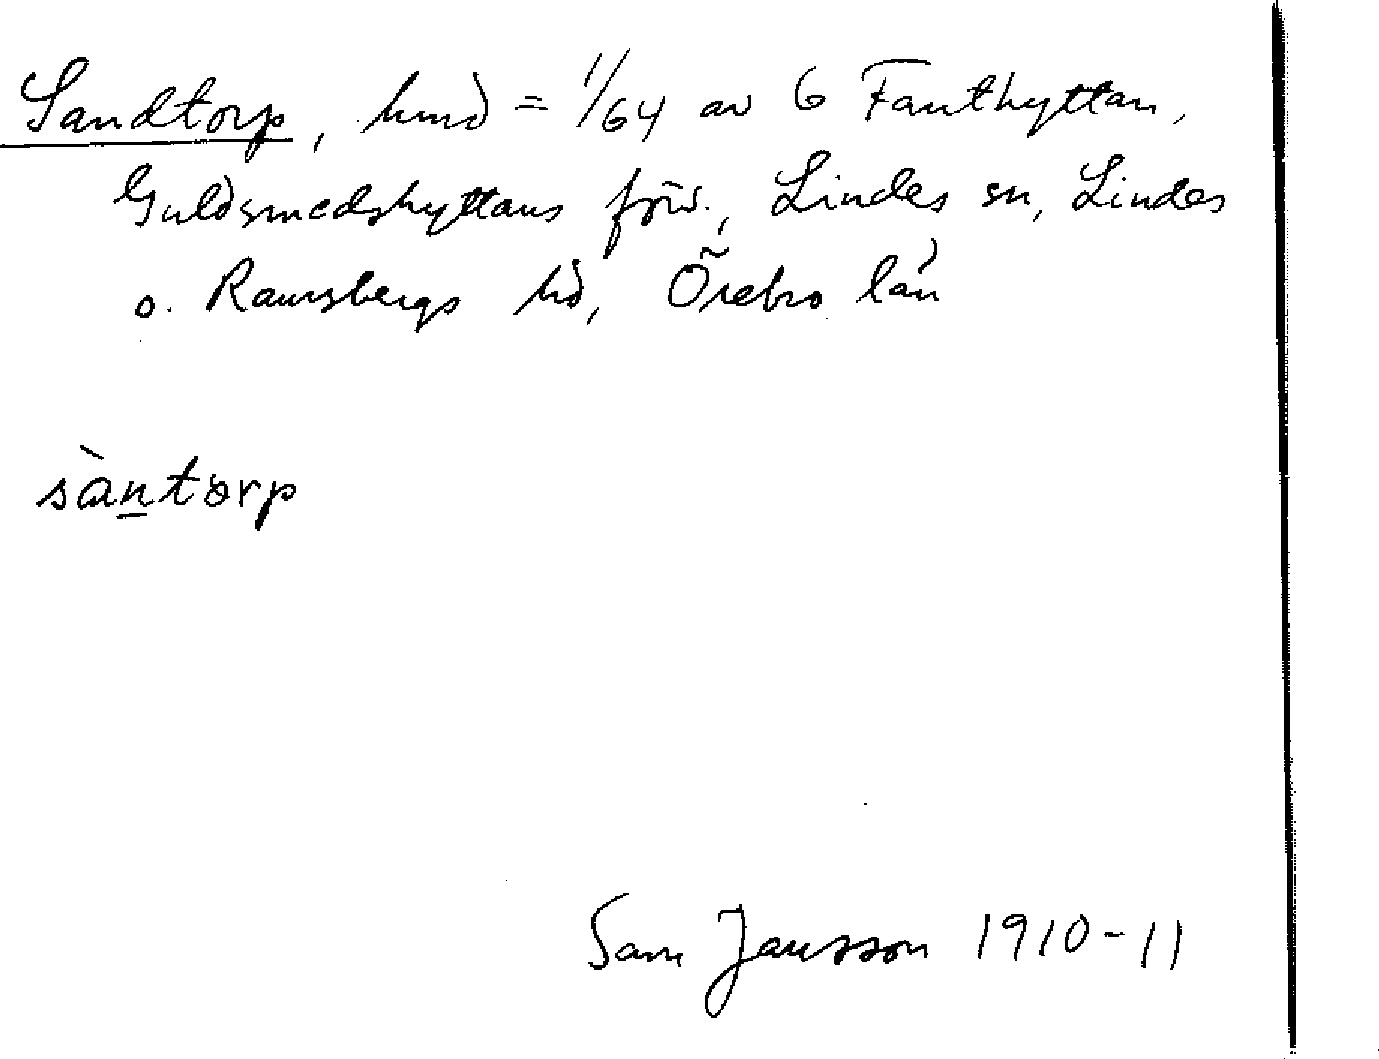 Sandtorp, hmd = 1/64 av 6 Fanthyttan,
Guldsmedshyttans förs., Lindes sn, Lindes
o. Ramsbergs hd, Örebro län
sàntorp
Sam Jansson 1910-11